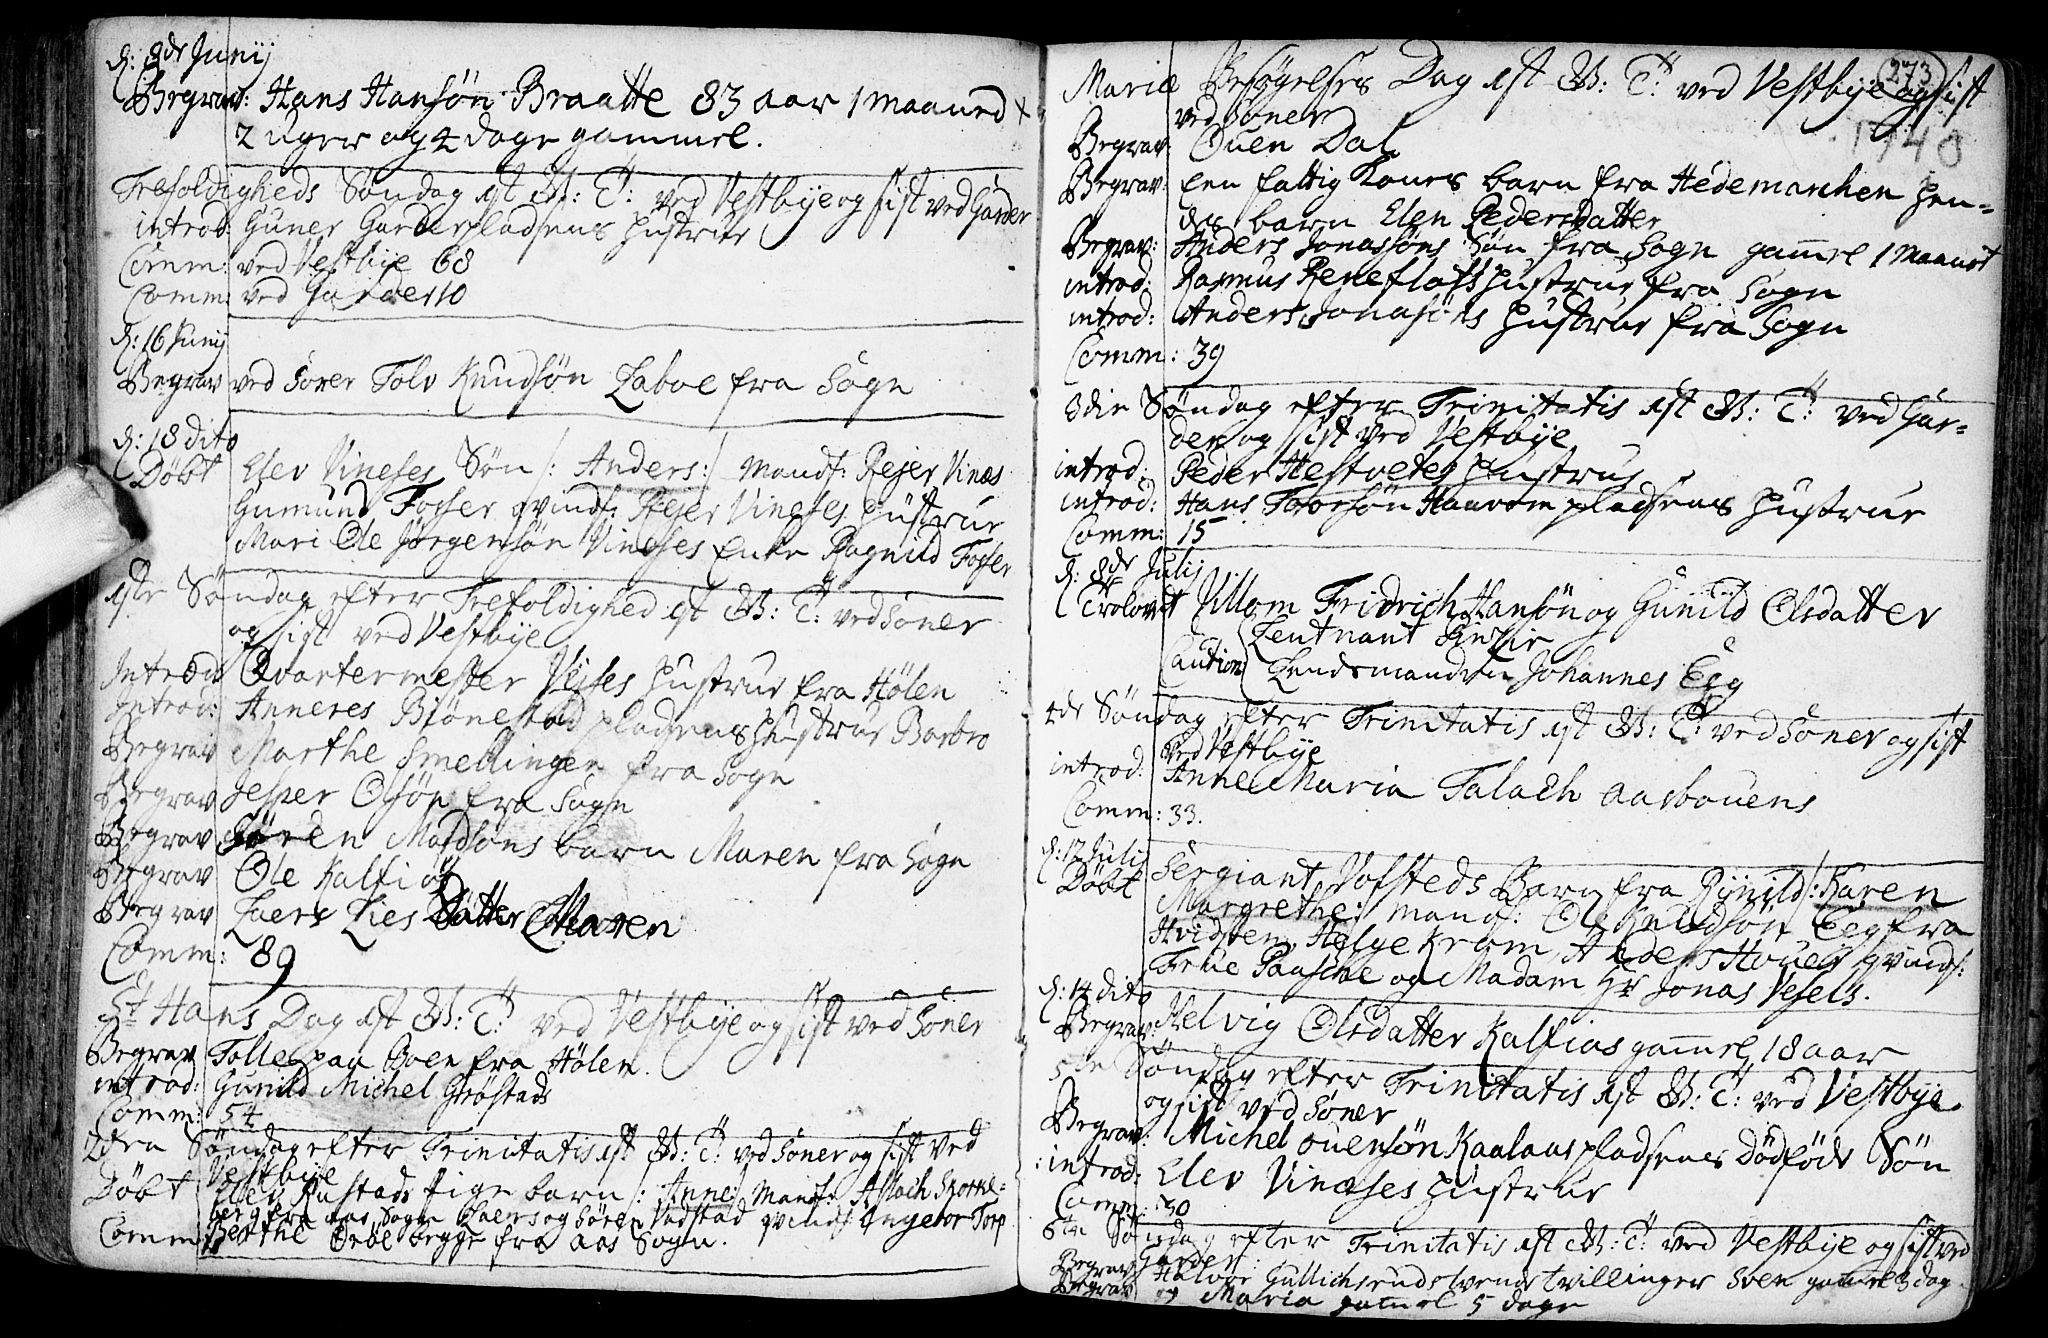 d: 9de Junij
Begrav: Hans Hansøn Braatte 83 aar 1 maaned
2 uger og 4 dage gammel.
Trefoldigheds Søndag ist ved Vestbye og sist ved Garder
introd: Guner Garderpladsens Hustrue
Comm: ved Vestbye 68
Comm: ved Garder 10
d: 16 Junij
Begrav ved Soner Tolv Knudsøn Laboe fra Sogn
d: 18 dito
Døbt Elev Vineses Søn /: Anders :/ Mandf: Rejer Vinæs
Gumund Fosser qvindf: Rejer Vineses Hustrue
Mari Ole Jørgensøn Vineses Enke Ragnild Fosser
1ste Søndag efter Trefoldighed ist ved Soner
og sist ved Vestbye
Introdu Qvartermester Vejses Hustrue fra Hølen
Introd: Anneres Biønestad pladsens Hustrue Barbro
Begrav Marthe Smellingen fra Sogn
Begrav Jesper Olsøn fra Sogn
Begrav Søren Madsøns barn Maren fra Sogn
Begrav Ole Kalfiøs
Begrav Laers Lies Datter Maren
Comm: 89
St Hans Dag ist ved Vestbye og sist ved Soner
Begrav Tolle paa Boen fra Hølen.
introd: Gunild Michel Grøstads
Comm: 54
2den Søndag efter Trinitatis ist ved Soner og sist ved
Vestbye
Døbt Elev Rustads Pige barn /: Anne :/ Mandf: Aslach Skotte=
berg fra aas Sogn Laers og Søren Vadstad qvindf: Ingebor Torp
Comm: Berthe Ørbe begge fra aas Sogn.
273
Mariæ Besøgelses Dag ist ved Vestbye og sist
ved Soner
1740
Begrav: Ouen Dal
Begrav: Een fattig Kones barn fra Hedemarchen hen=
des barn Elen Pedersdatter
Begrav: Anders Jonassøns Søn fra Sogn gamel 1 maanet
introd: Rasmus Reneflots Hustrue fra Sogn
introd: Anders Jonasøns Hustrue fra Sogn
Comm: 39
3die Søndag efter Trinitatis ist ved Gar=
der og sist ved Vestbye
introd: Peder Hestvetes Hustrue
introd: Hans Torersøn Haarom pladsens Hustrue
Comm: 15
d: 8de Julij
Trolovet Villom Fridrich Hansøn og Gunild Olsdatter
Caution Leutnant
Lensmanden Johannes Eeg
4de Søndag efter Trinitatis ist ved Soner og sist
ved Vestbye
introd: Anne Maria Falach aasbouens
Comm: 33.
d: 12 Julij
Døbt Sergiant Vofsteds Barn fra Rynild /: Karen
Margrethe :/ mandf: Ole Knudsøn Eeg fra
Hvidsten, Helge Krom Anders Houen qvindf:
Frue Paasche og Madam Hr Jonas Vesels.
d: 14 dito
Begrav: Helvig Olsdatter Kalfiøs gamel 18 aar
5te Søndag efter Trinitatis ist ved Vestbye
og sist ved Soner
Begrav: Michel ouensøn Kaalaas pladsens Dødføde Søn
introd: Elev Vineses Hustrue
Comm: 30
6te Søndag efter Trinitatis ist ved Vestbye og sist ved
Garder
Begrav Halvor Gullichserudelvens tvillinger Sven gamel 3 dag
Begrav og Maria gamel 5 dage